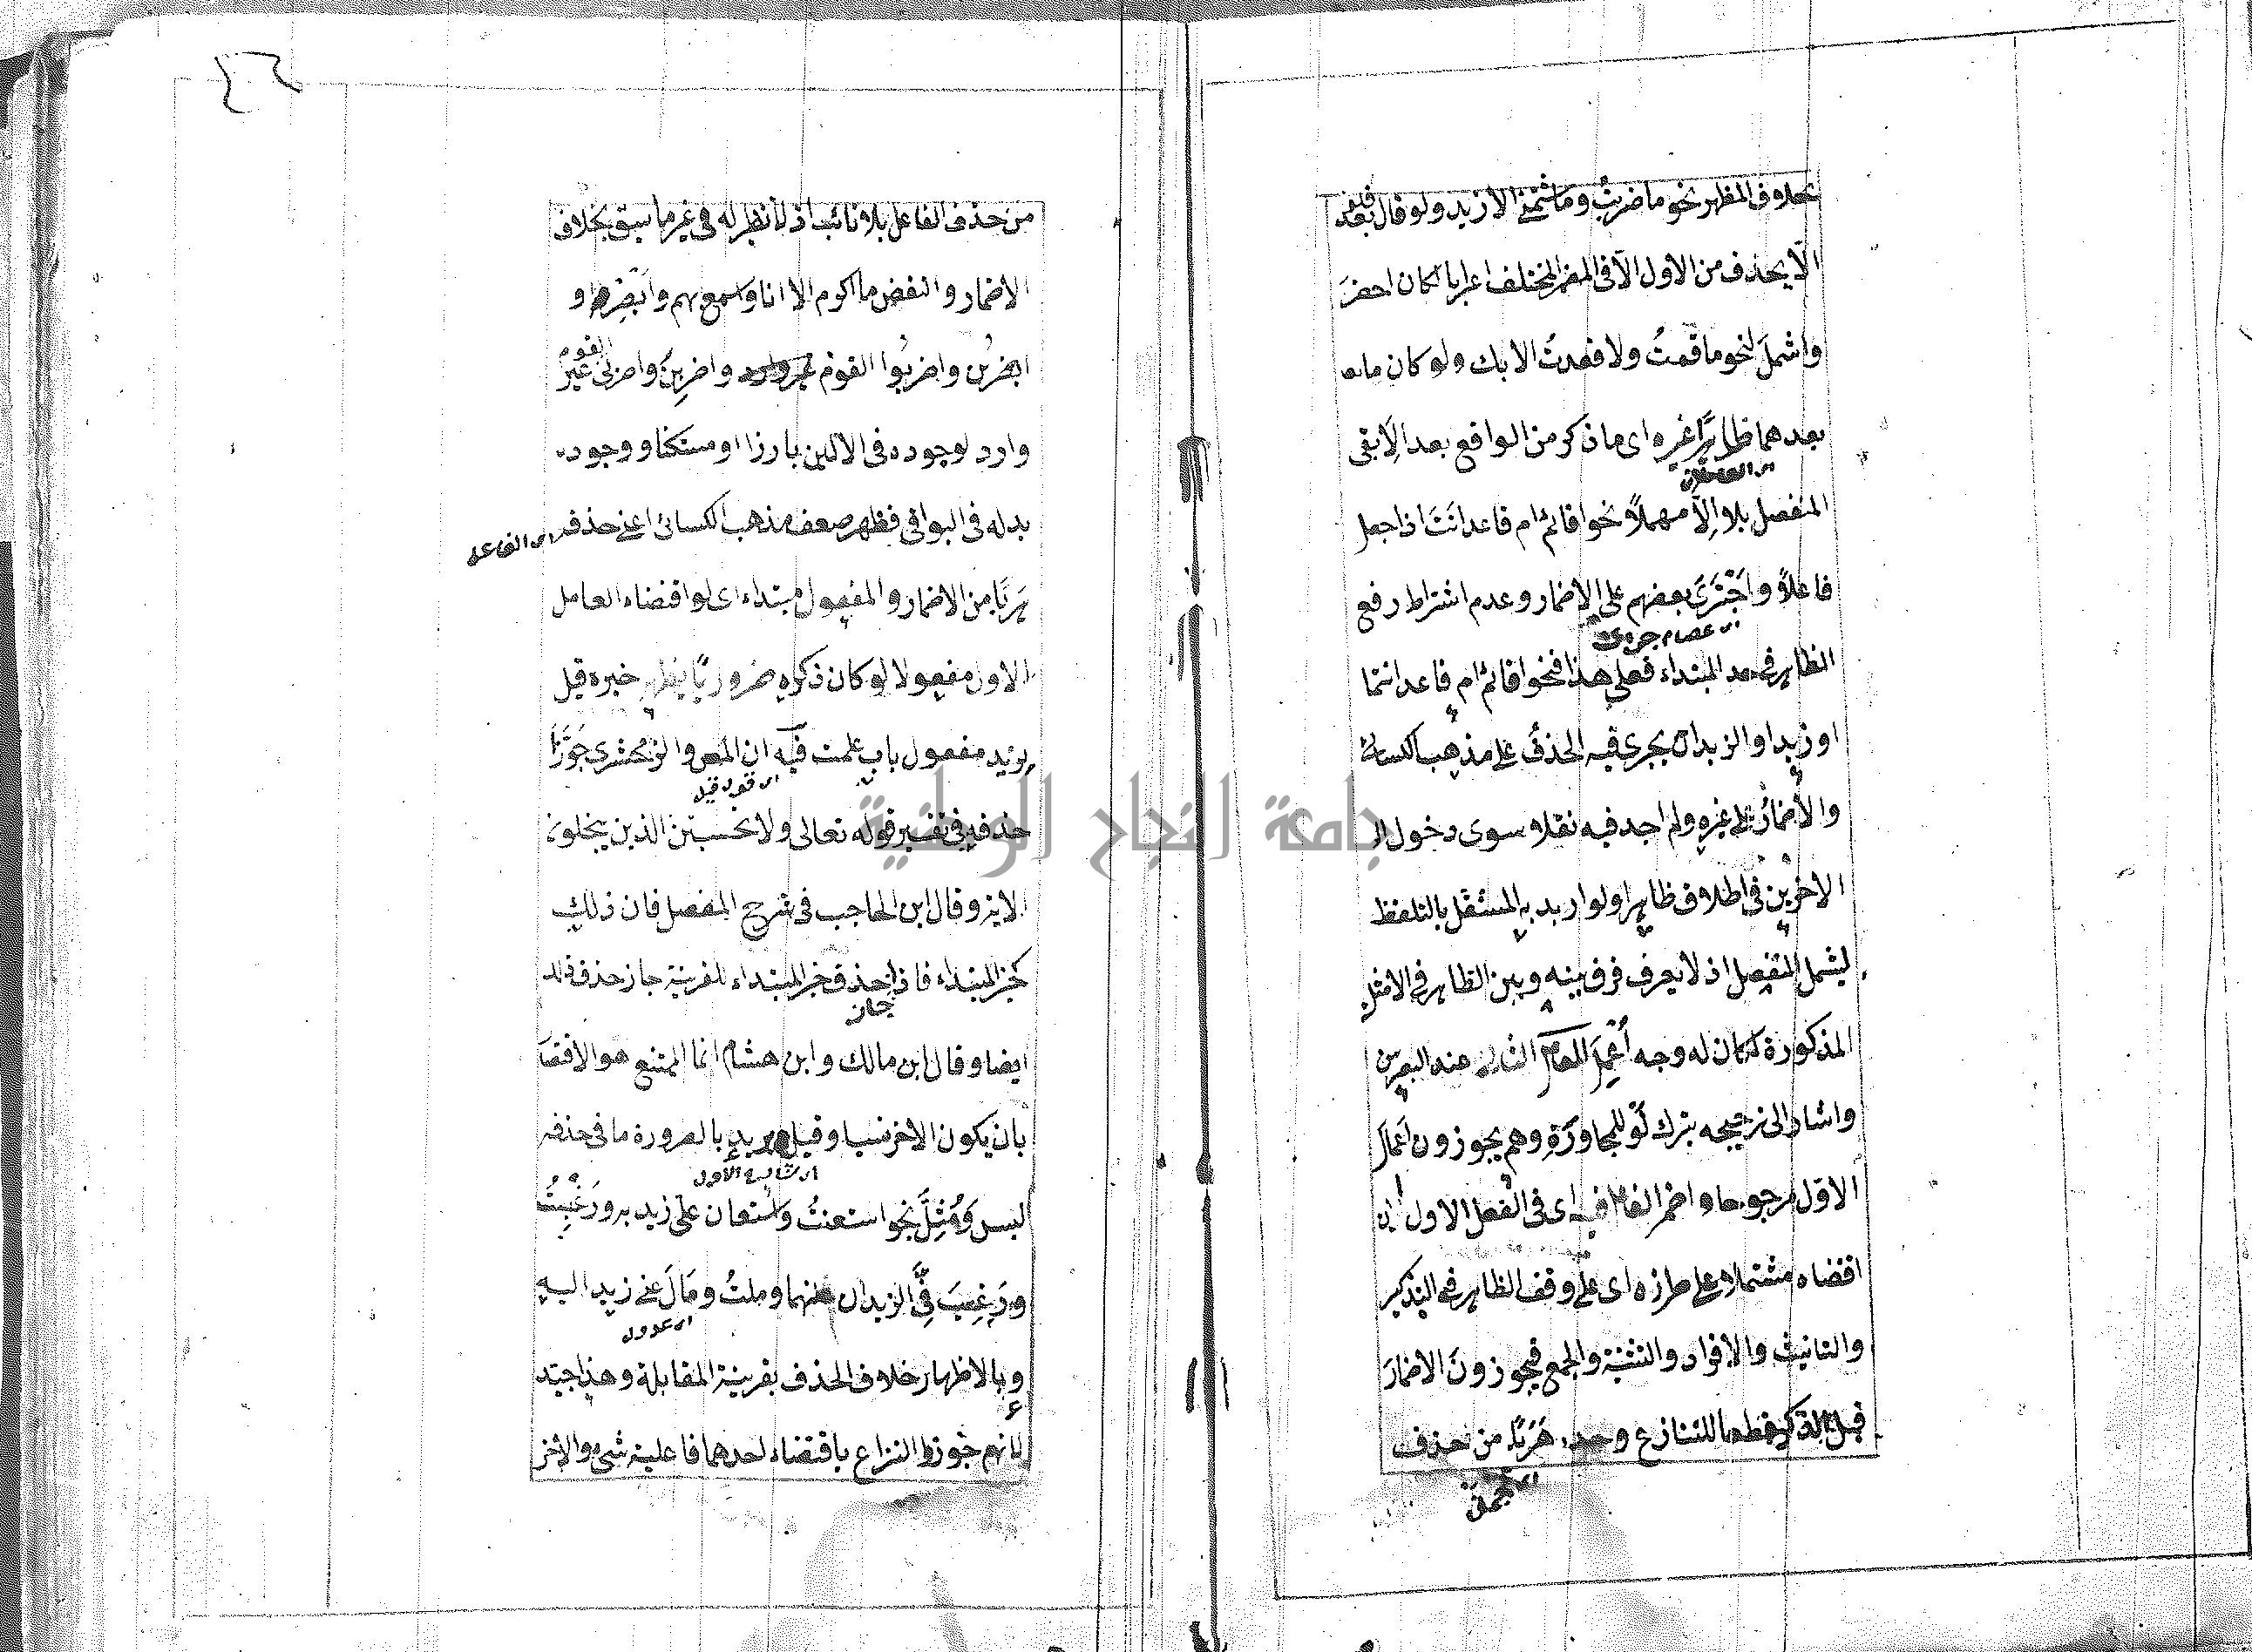 بخلاف المظهر نحو ما ضربتُ وما شتمني الا زيد ولو قال بعد
الّا يحذف من الاول الّا في المضمر المختلف اعرابا لكان احضر
واشمل نحو ما قمتُ ولا قعدتُ الا بك ولو كان ما
بعدهما ظاهرًا غيره اى ما ذكر من الواقع بعد الا بقى
المنفصل بلا الّا مهملاً نحو اقائم ام قاعد انتَ اذا جعل
فاعلاً واجترى بعضهم على الاضمار وعدم اشتراط رفع
اى عصام
الظاهر في حد المبتداء فعلى هذا فنحو اقائم ام قاعد انتما
او زيد او الزيدان يجرى فيه الحذف على مذهب الكسائي
والاضمار على غيره ولم اجد فيه نقلا سوى دخول
الاخرين في اطلاق ظاهرا ولو اريد به المستقل بالتلفظ
ليشمل المنفصل اذ لا يعرف فرق بينه وبين الظاهر في الامثلة
المذكورة لكان له وجه أعمل العامل الثاني عند البصريين
واشار الى ترجيحه بترك لو للمجاورة وهم يجوزون اعمال
الاول مرجوحا واضمر الفاعل فيه اى في الفعل الاول ان
اقتضاه مشتملا على طرازه اى على وفق الظاهر في التذكير
والتانيث والافراد والتثنية والجمع فيجوزون الاضمار
قبل الذكر قطعا للتنازع وحده هَرَبًا من حذف
من حذف الفاعل بلا نائب اذ لا نظير له في غير ما سبق بخلاف
الاضمار والنقض ما اكرم الا انا واسمع بهم وابصر او
القوم
ابصر بن واضربوا القوم واضربن واضربي غير
وارد لوجوده في الاولين بارزا او مستكنا ووجود
بدله في البواقي فظهر ضعف مذهب الكسائي اعني حذفه
اى الفاعل
هربًا من الاضمار والمفعول مبتداء اى لو اقتضاه العامل
الاول مفعولا لو كان ذكره ضروريًا خبره قيل
يريد مفعول باب علمت فيه ان المص والزمخشرى جَوَّزا
اى قوله قيل
حذفه في تفسير قوله تعالى ولا تحسبن الذين يبخلون
الاية وقال ابن الحاجب في شرح المفصل فان ذلك
كخبر المبتداء فاذا حذف خبر المبتداء للقرينة جاز حذف ذلك
جاز
ايضا وقال ابن مالك وابن هشام انما الممتنع هو الاقتصار
بان يكون الاخر نسيا وقيل يريد بالضرورة ما في حذفه
لبس ومُثِّل نحو استعنتُ واستعان علىّ زيد به ورَغِبتُ
ورَغِبَ فيَّ الزيدان عنهما وملتُ ومَالَ عني زيد اليه
وبالاظهار خلاف الحذف بقرينة المقابلة وهذا جيّد
لانهم جوزوا النزاع باقتضاء احدهما فاعلية شىء والاخر
جامعة النجاح الوطنية